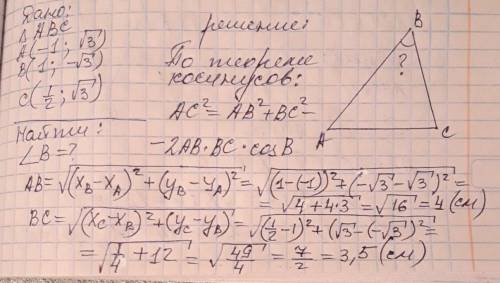 Дано:
Δ ABC
A(-1; √3)
B(1; -√3)
C(1/2; √3)
Найти:
∠B=?
решение:
По теореме
косинусов:
AC² = AB² + BC² -
-2AB·BC·cosB
B
?
A
C
AB = √((x_B - x_A)² + (y_B - y_A)²) = √((1-(-1))² + (-√3-√3)²) =
= √(4+4·3) = √16 = 4 (см)
BC = √((x_C - x_B)² + (y_C - y_B)²) = √((1/2 - 1)² + (√3-(-√3))²) =
= √(1/4 + 12) = √(49/4) = 7/2 = 3,5 (см)